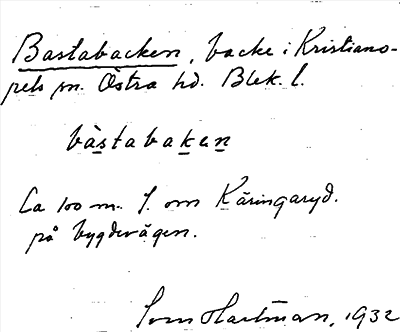 Bastabacken, backe i Kristiano-
pels sn. Östra hd. Blek. l.
bàstabaken
Ca 100 m. S. om Käringaryd.
på bygdevägen.
Sven Hartman, 1932